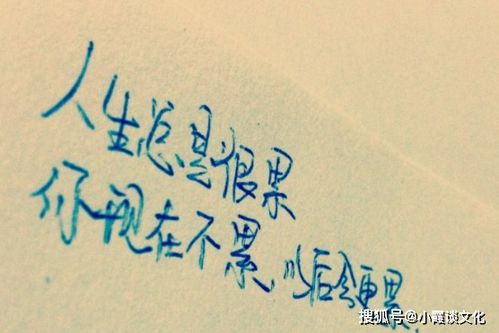 人生总是很累
你现在不累,以后会更累.
搜狐号@小霞谈文化